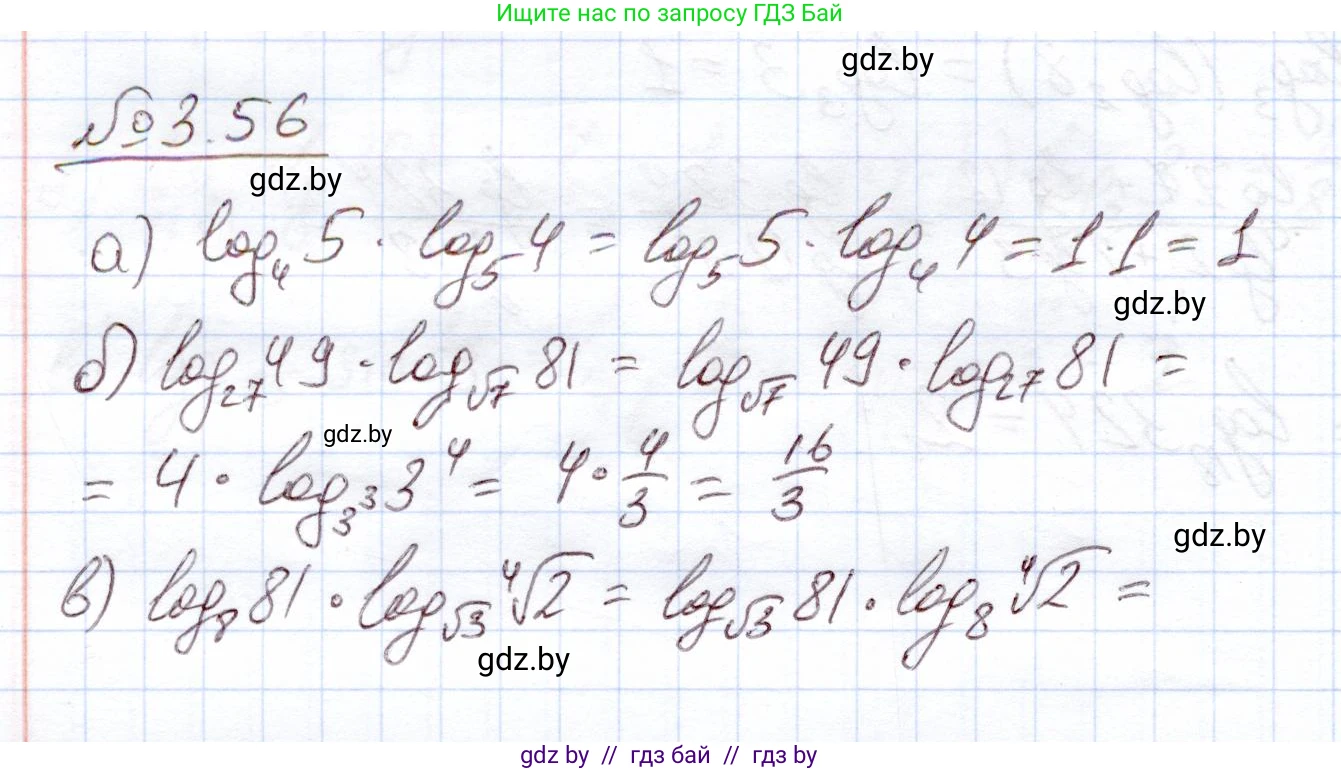 Ищите нас по запросу ГДЗ Бай
gdz.by
№3.56
gdz.by
а) log₄5 · log₅4 = log₅5 · log₄4 = 1·1 = 1
gdz.by
б) log₂₇49 · log_√7 81 = log_√7 49 · log₂₇81 =
gdz.by
= 4 · log_3³ 3⁴ = 4 · 4/3 = 16/3
gdz.by
в) log₈81 · log_√3 ⁴√2 = log_√3 81 · log₈ ⁴√2 =
gdz.by
gdz.by // гдз бай // гдз by